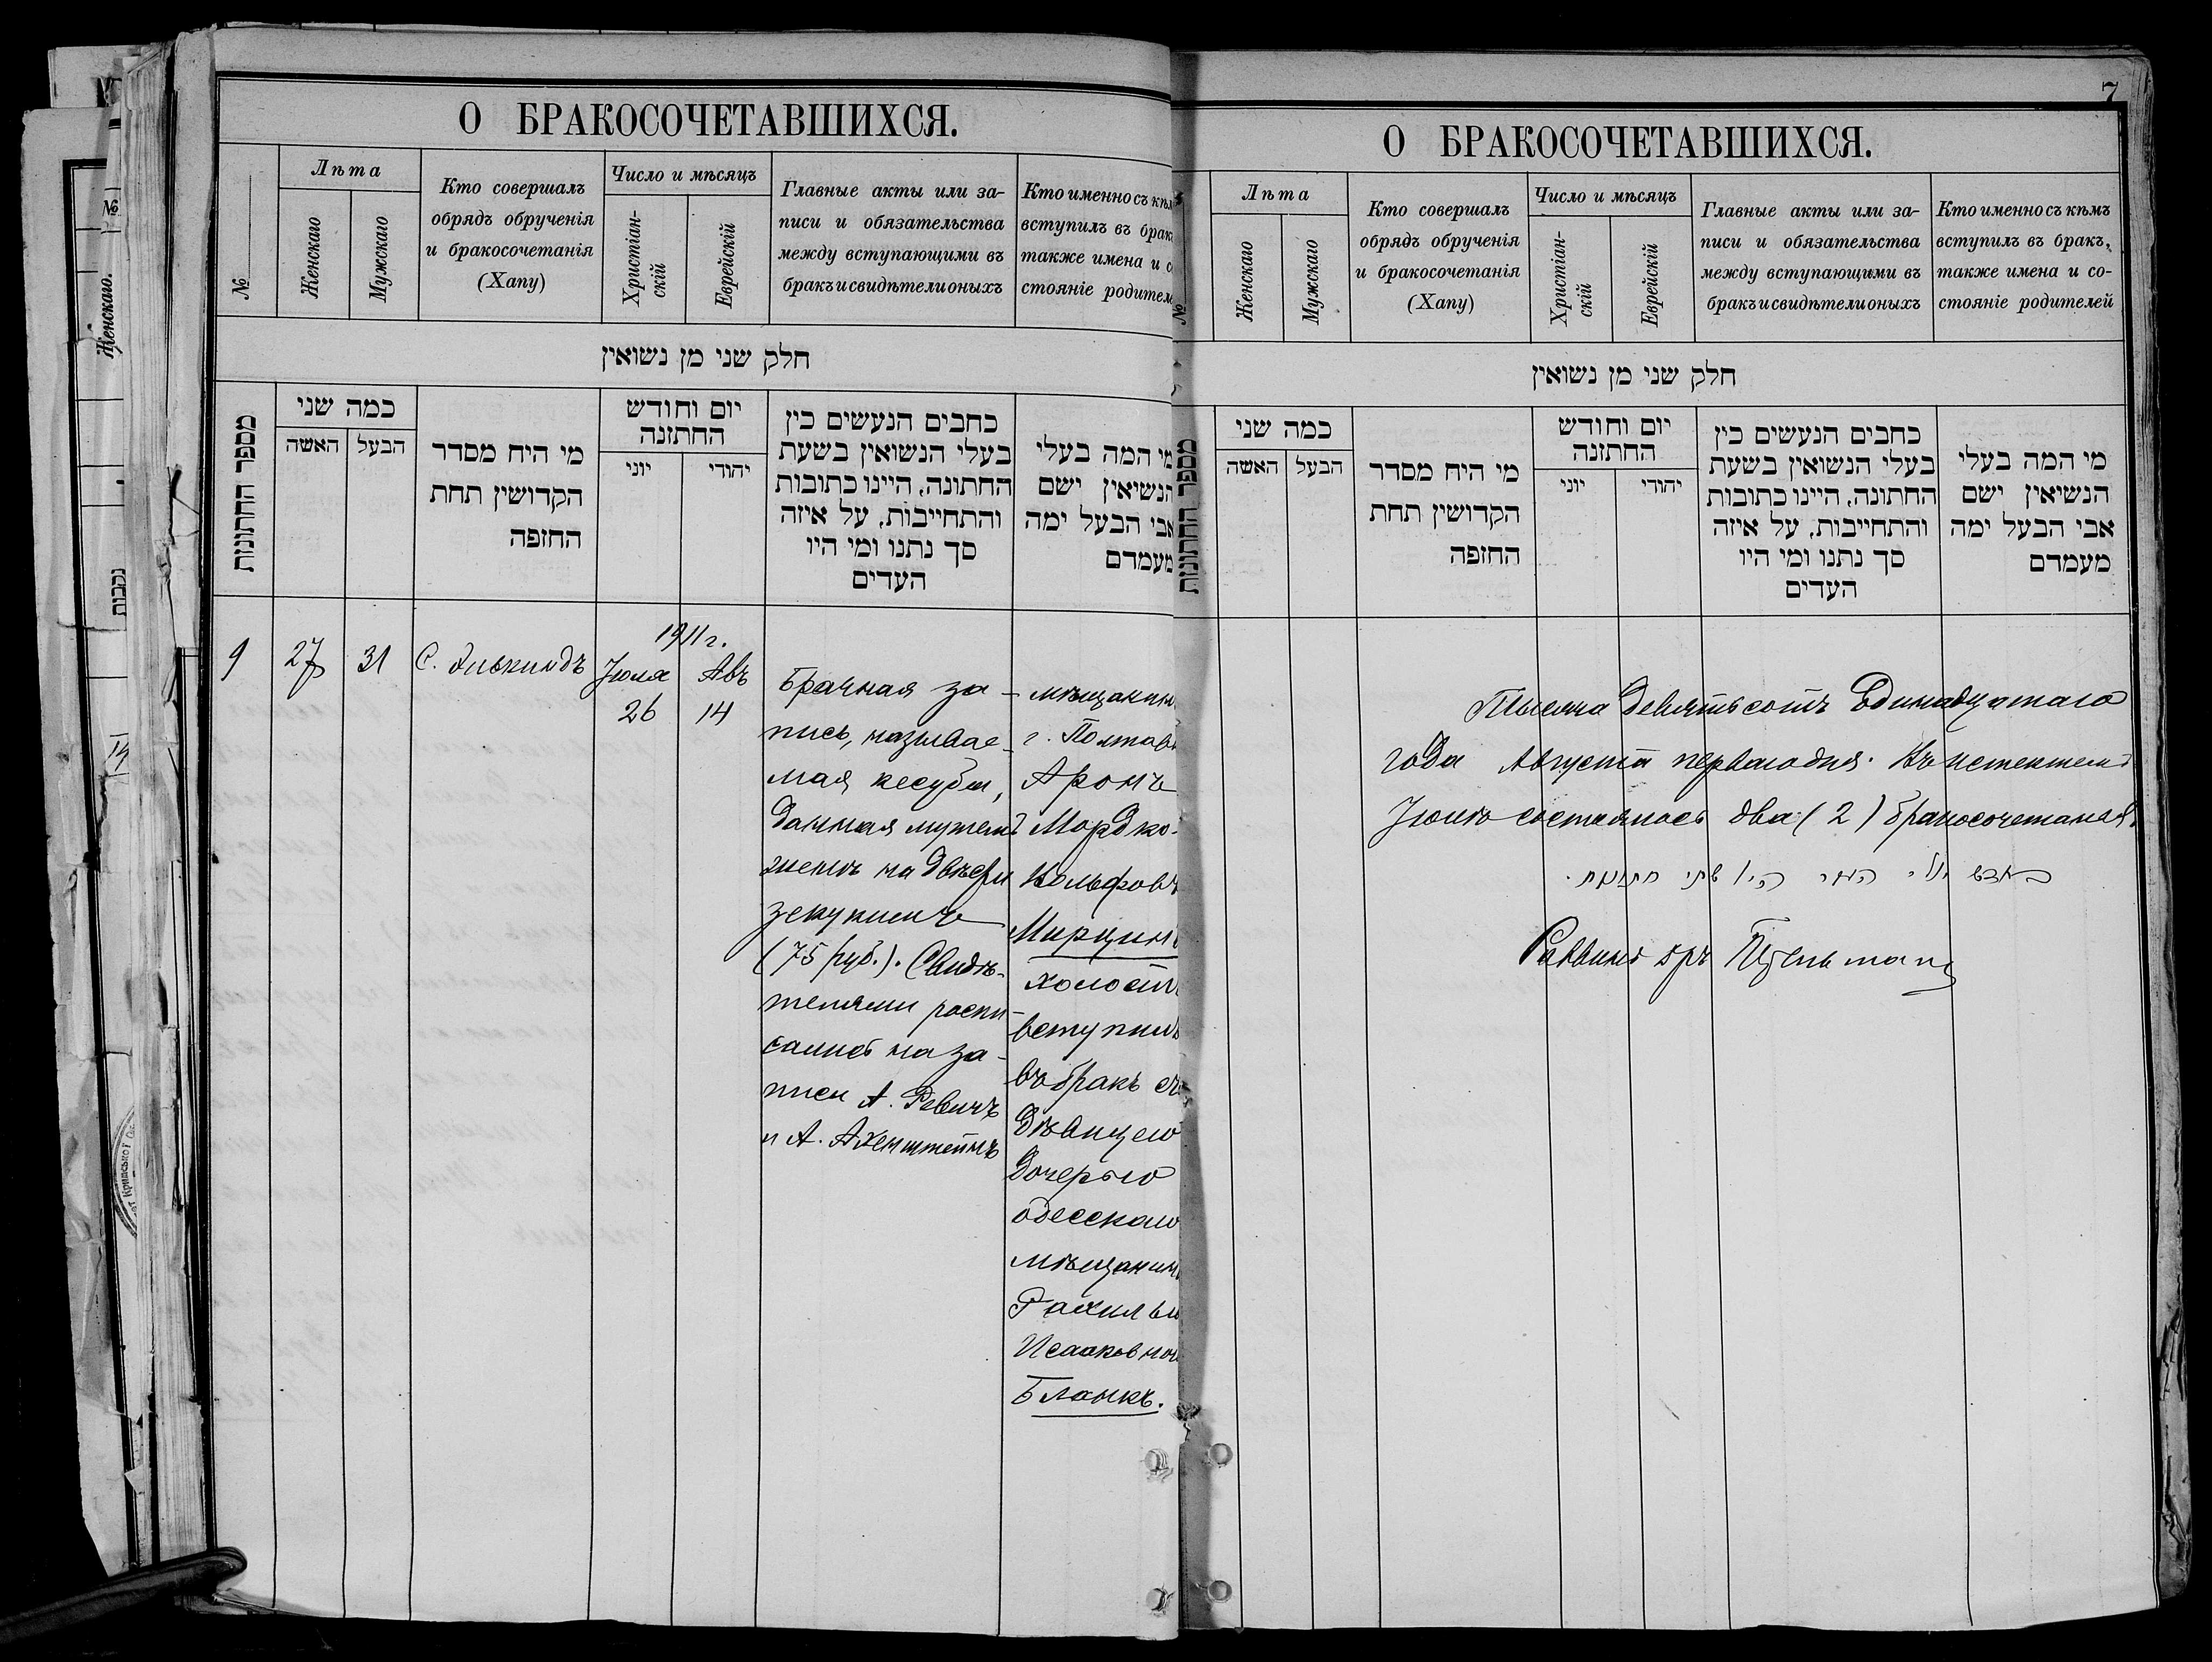 О БРАКОСОЧЕТАВШИХСЯ.
№
Лѣта
Женскаго
Мужскаго
Кто совершалъ
обрядъ обрученія
и бракосочетанія
(Хапу)
Число и мѣсяцъ
Христіан-
скій
Еврейскій
Главные акты или за-
писи и обязательства
между вступающими въ
бракъ и свидѣтели оныхъ
Кто именно съ кѣм
вступилъ въ брак
также имена и с
стояніе родител
חלק שני מן נשואין
מספר החתונות
כמה שני
האשה
הבעל
מי היח מסדר
הקדושין תחת
החזפה
יום וחודש
החתזנה
יוני
יהודי
כחבים הנעשים כין
בעלי הנשואין בשעת
החתונה, היינו כתובות
והתחייבות, על איזה
סך נתנו ומי היו
העדים
מי המה בעלי
הנשיאין ישם
אבי הבעל ימה
מעמדם
9
27
31
С. Элькиндъ
1911 г.
Іюля
26
Авъ
14
Брачная за-
пись, называе-
мая кесубы,
данная мужемъ
женѣ на двѣсти
зекукимъ
(75 руб.). Свидѣ-
телями распи-
сались на за-
писи А. Ревичъ
и А.
мѣщанин
г. Полтав
Аронъ
Мордко-
Вольфовъ
Мирцинъ
холостъ
вступилъ
въ бракъ съ
дѣвицею
дочерью
одесскаго
мѣщанин
Рахилью
Исааковно
Бланкъ.
7
О БРАКОСОЧЕТАВШИХСЯ.
№
Лѣта
Женскаго
Мужскаго
Кто совершалъ
обрядъ обрученія
и бракосочетанія
(Хапу)
Число и мѣсяцъ
Христіан-
скій
Еврейскій
Главные акты или за-
писи и обязательства
между вступающими въ
бракъ и свидѣтели оныхъ
Кто именно съ кѣмъ
вступилъ въ бракъ,
также имена и со-
стояніе родителей
חלק שני מן נשואין
מספר החתונות
כמה שני
האשה
הבעל
מי היח מסדר
הקדושין תחת
החזפה
יום וחודש
החתזנה
יוני
יהודי
כחבים הנעשים כין
בעלי הנשואין בשעת
החתונה, היינו כתובות
והתחייבות, על איזה
סך נתנו ומי היו
העדים
מי המה בעלי
הנשיאין ישם
אבי הבעל ימה
מעמדם
Тысяча девятьсотъ Единадцатаго
года Августа перваго дня. Въ истекшемъ
Іюлѣ состоялось два (2) бракосочетанія.
שתי חתונות.
Раввинъ
Женскаго.
№
נכבות
14